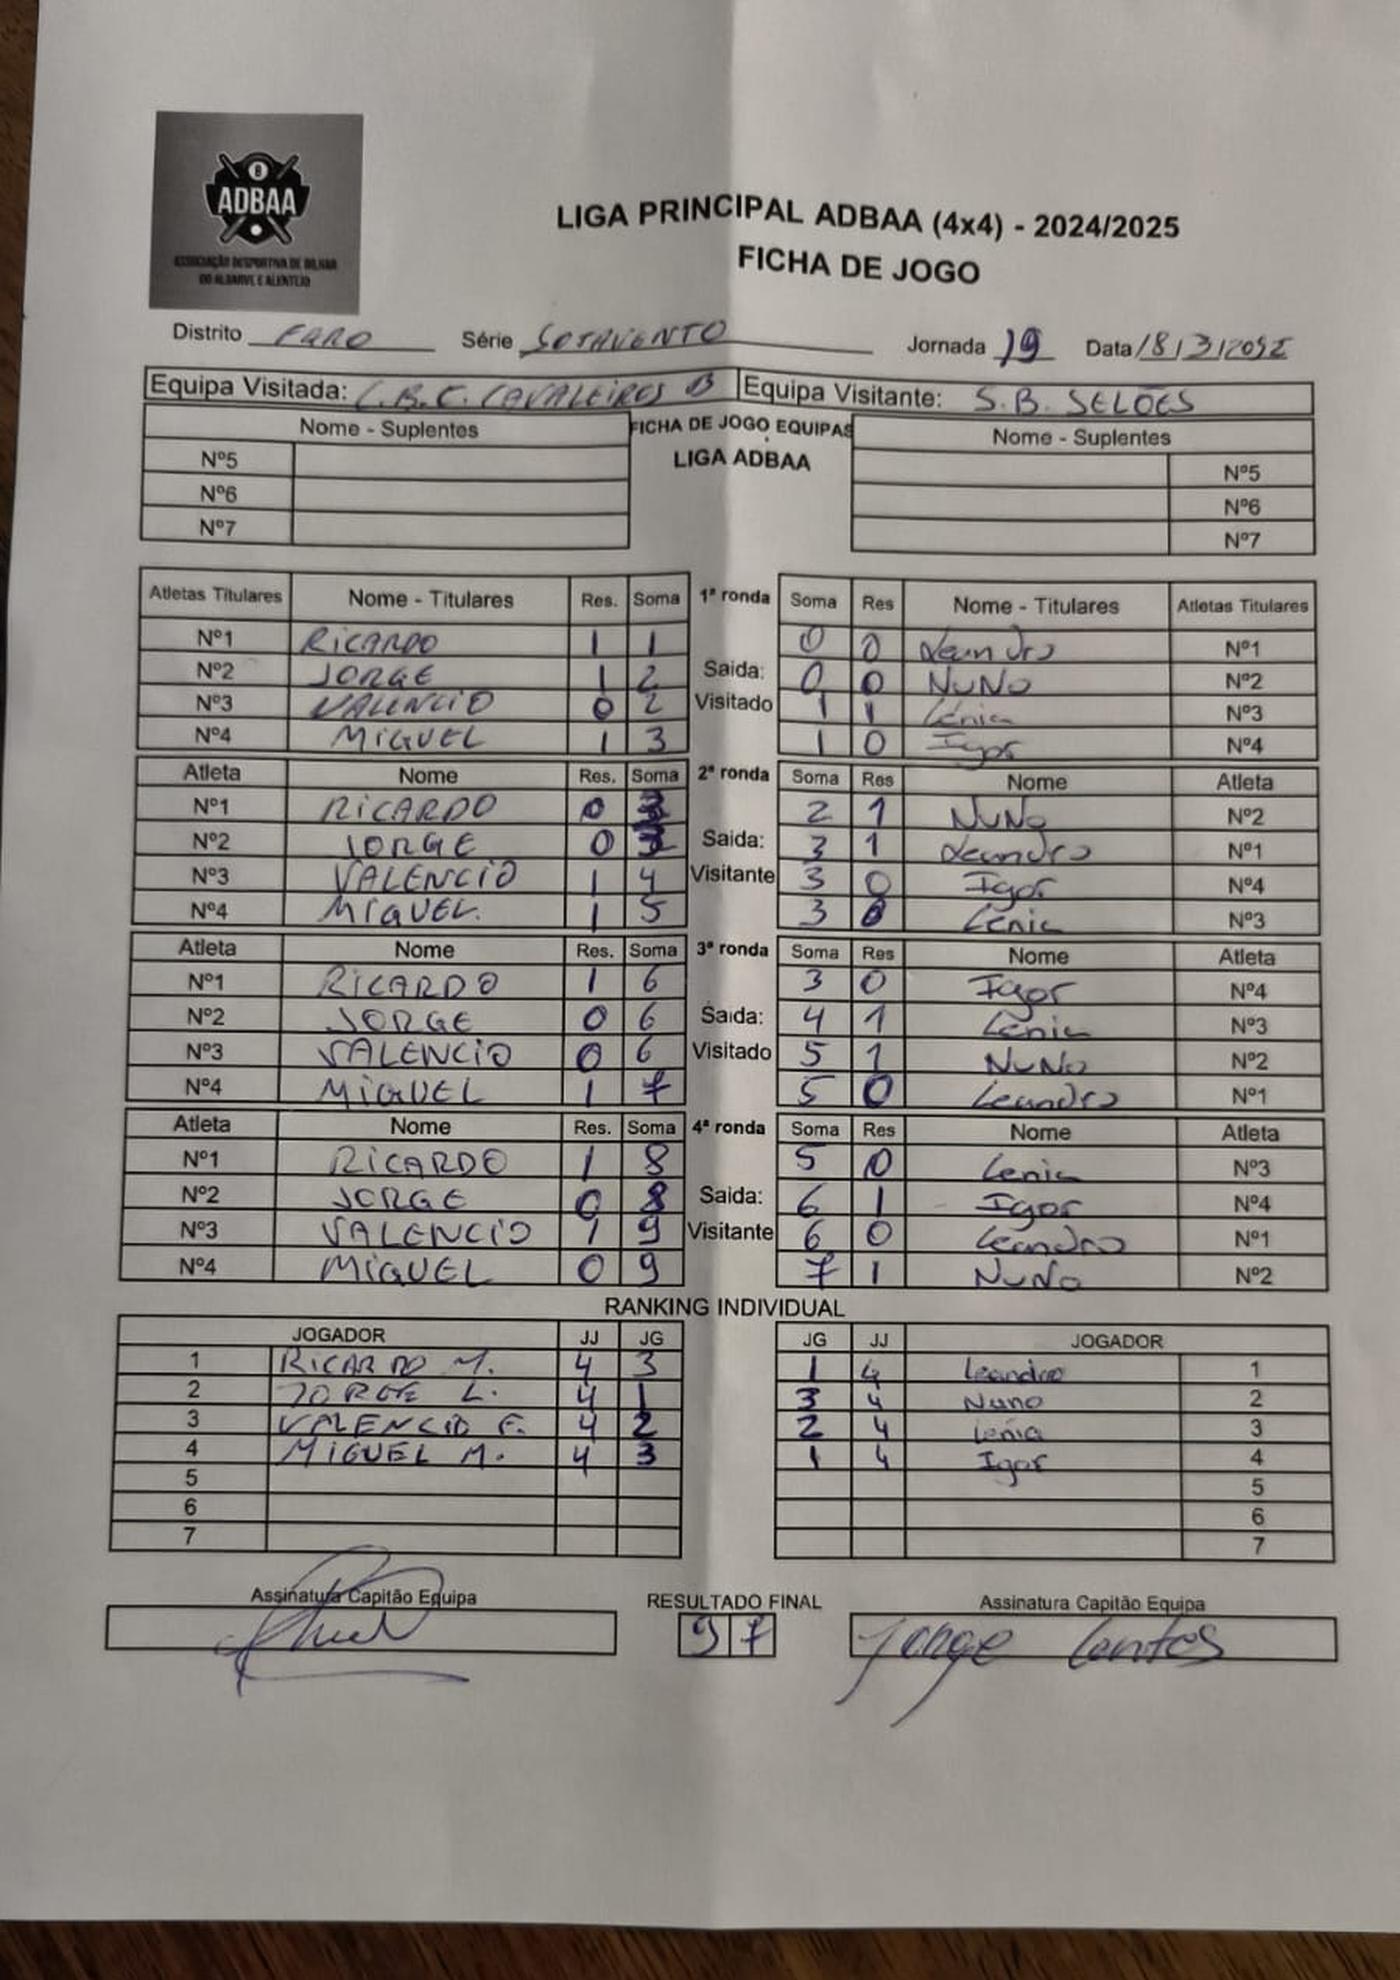 8
ADBAA
ASSOCIAÇÃO DESPORTIVA DE BILHAR
DO ALGARVE E ALENTEJO
LIGA PRINCIPAL ADBAA (4x4) - 2024/2025
FICHA DE JOGO
Distrito FARO Série SOTAVENTO Jornada 19 Data 18/3/2025
Equipa Visitada: C.B.C. CAVALEIROS B Equipa Visitante: S.B. SELÕES
Nome - Suplentes FICHA DE JOGO EQUIPAS Nome - Suplentes
LIGA ADBAA
Nº5 Nº5
Nº6 Nº6
Nº7 Nº7
Atletas Titulares Nome - Titulares Res. Soma 1ª ronda Soma Res Nome - Titulares Atletas Titulares
Nº1 RICARDO 1 1 0 0 Leandro Nº1
Nº2 JORGE 1 2 Saida: 0 0 NUNO Nº2
Nº3 VALENCIO 0 2 Visitado 1 1 Lénia Nº3
Nº4 MIGUEL 1 3 1 0 Igor Nº4
Atleta Nome Res. Soma 2ª ronda Soma Res Nome Atleta
Nº1 RICARDO 0 3 2 1 NUNO Nº2
Nº2 JORGE 0 3 Saida: 3 1 Leandro Nº1
Nº3 VALENCIO 1 4 Visitante 3 0 Igor Nº4
Nº4 MIGUEL. 1 5 3 0 Lénia Nº3
Atleta Nome Res. Soma 3ª ronda Soma Res Nome Atleta
Nº1 RICARDO 1 6 3 0 Igor Nº4
Nº2 JORGE 0 6 Saida: 4 1 Lénia Nº3
Nº3 VALENCIO 0 6 Visitado 5 1 NUNO Nº2
Nº4 MIGUEL 1 7 5 0 Leandro Nº1
Atleta Nome Res. Soma 4ª ronda Soma Res Nome Atleta
Nº1 RICARDO 1 8 5 0 Lenia Nº3
Nº2 JORGE 0 8 Saida: 6 1 Igor Nº4
Nº3 VALENCIO 1 9 Visitante 6 0 Leandro Nº1
Nº4 MIGUEL 0 9 7 1 NUNO Nº2
RANKING INDIVIDUAL
JOGADOR JJ JG JG JJ JOGADOR
1 RICARDO M. 4 3 1 4 Leandro 1
2 JORGE L. 4 1 3 4 Nuno 2
3 VALENCIO F. 4 2 2 4 Lénia 3
4 MIGUEL M. 4 3 1 4 Igor 4
5 5
6 6
7 7
Assinatura Capitão Equipa RESULTADO FINAL Assinatura Capitão Equipa
9 7 Jorge